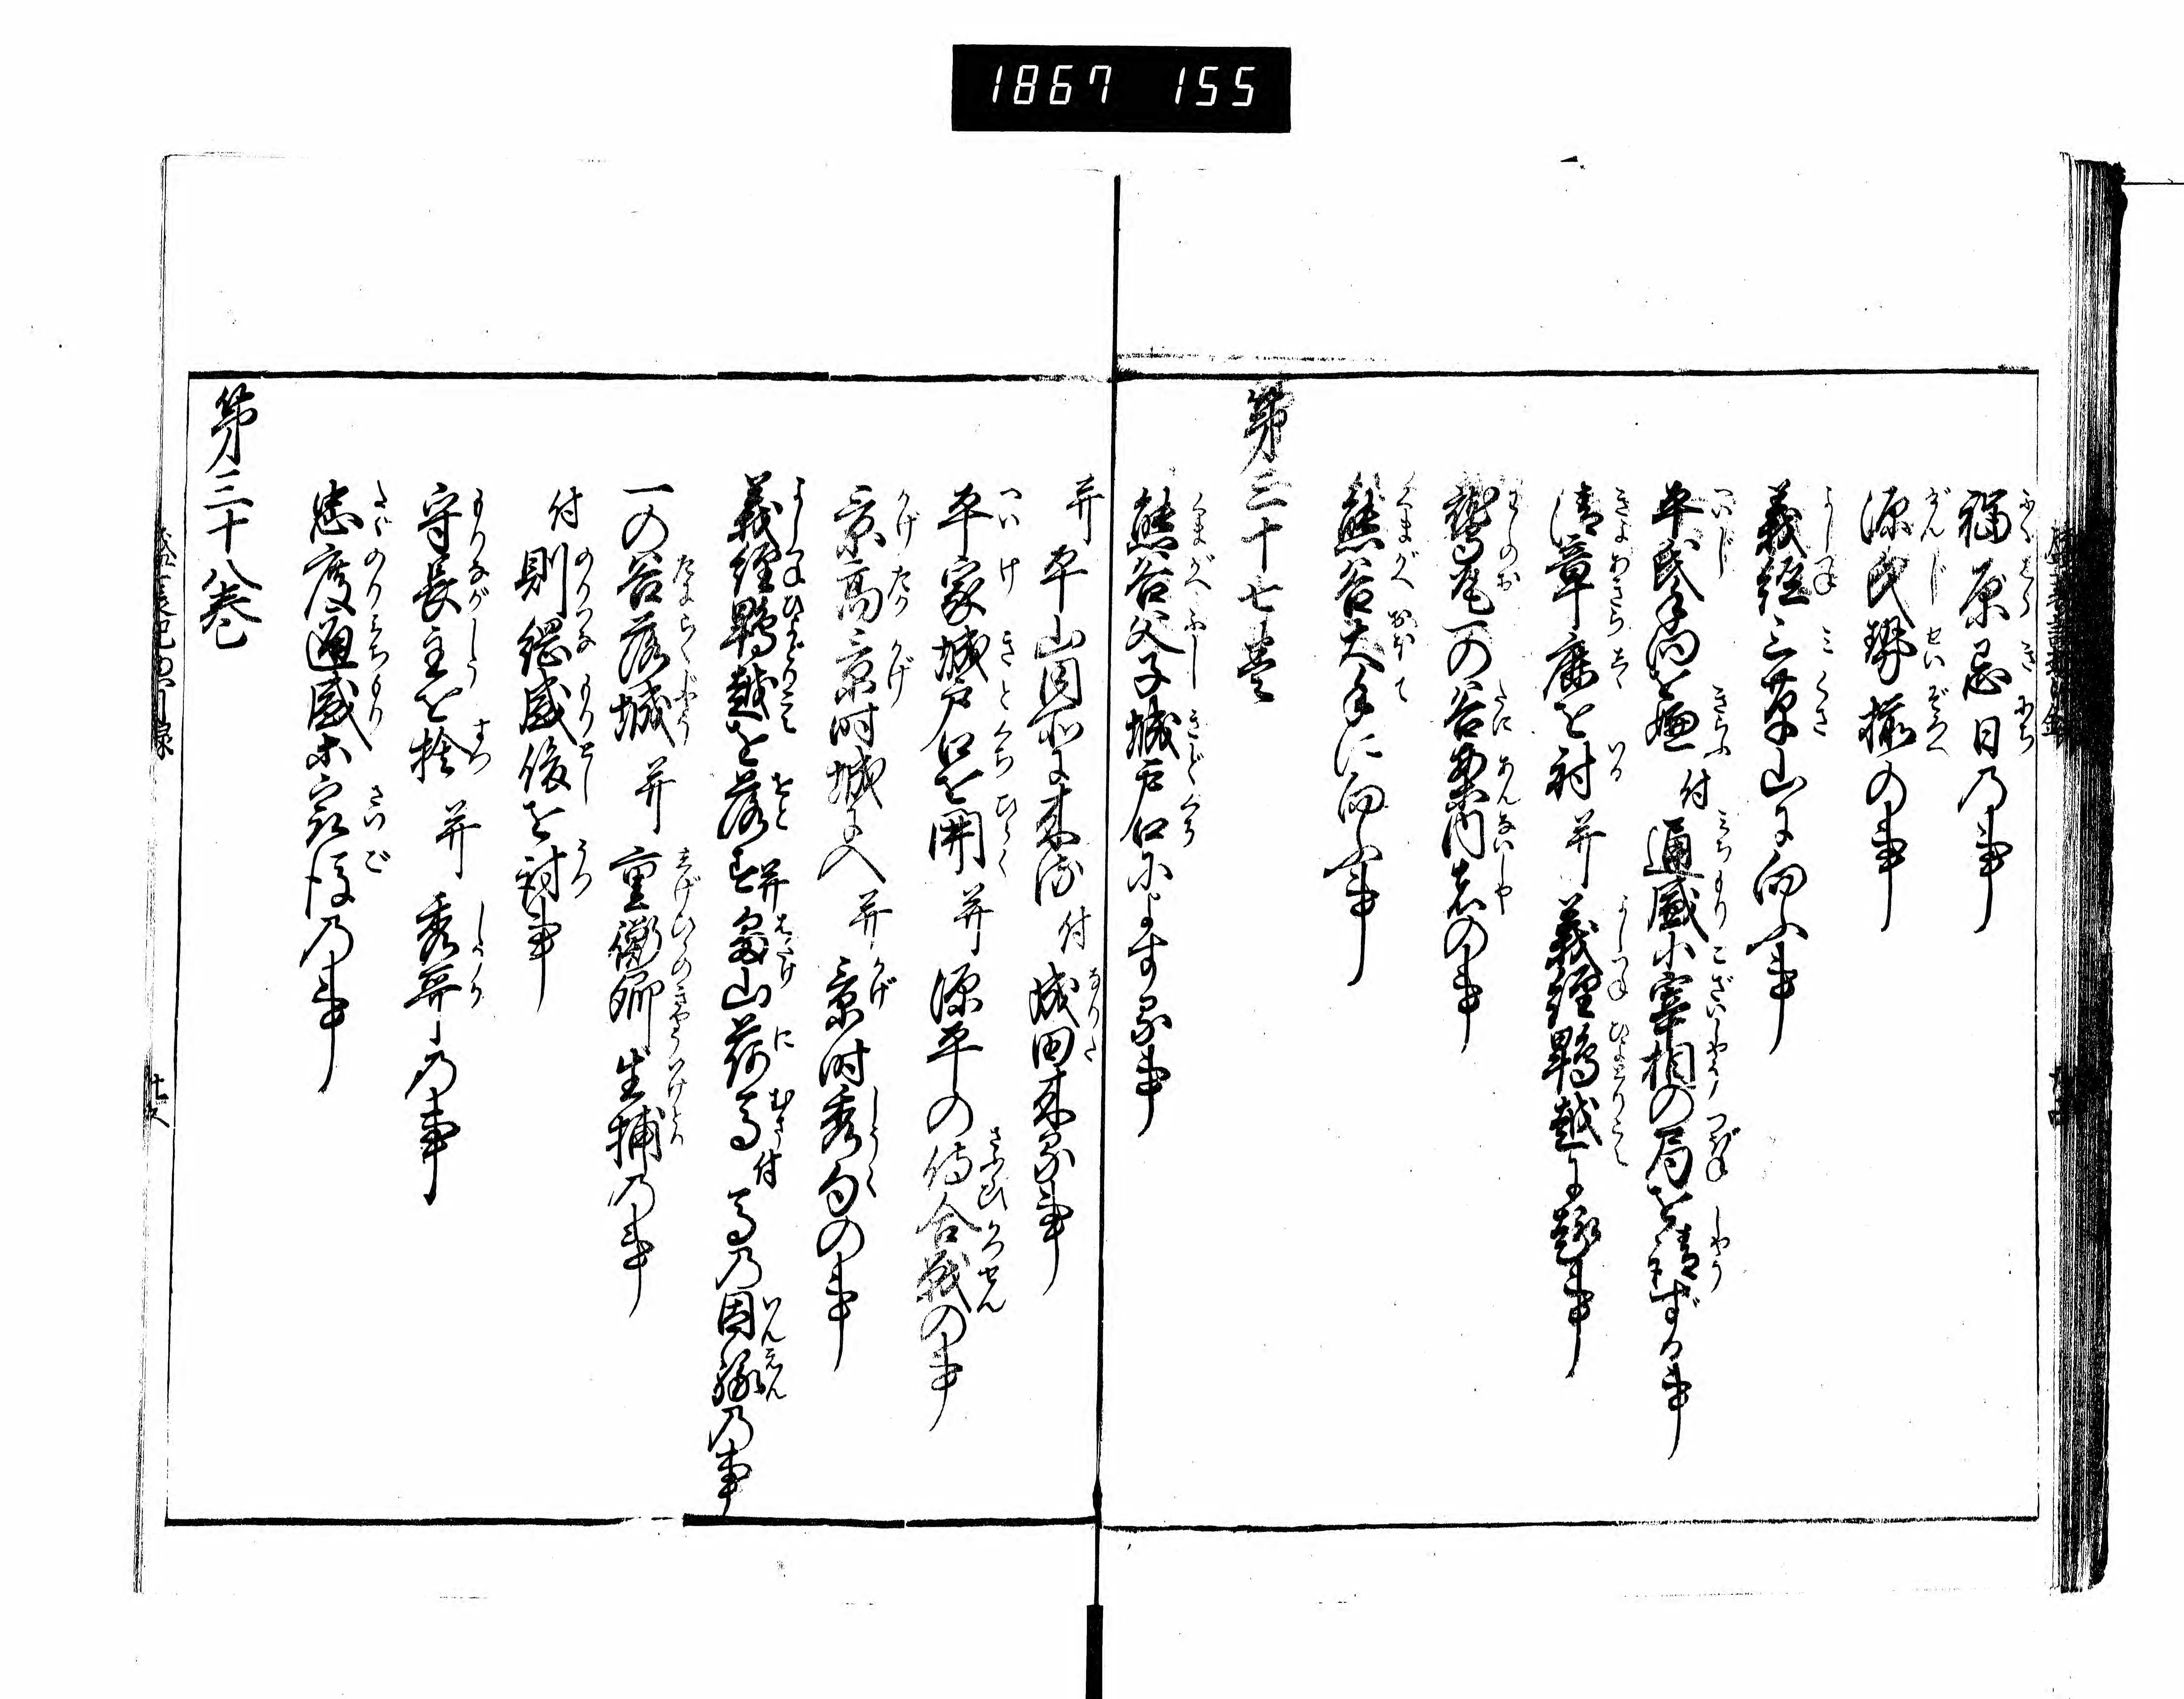 1867 155
福原忌日乃事
源氏勢揃の事
義経三草山に向ふ事
平氏手向を嫌 付 通盛小宰相の局を請ずる事
清章鹿を射 并 義経鵯越に趣事
鷲尾一の谷案内者の事
熊谷大手に向ふ事
第三十七巻
熊谷父子城戸口によする事
并 平山同所に来る 付 成田来る事
平家城戸口を開 并 源平の侍合戦の事
景高景時城に入 并 景時秀句の事
義経鵯越を落 并 畠山荷馬 付 馬乃因縁乃事
一の谷落城 并 重衡卿生捕乃事
付 則綱盛俊を討事
守長主を捨 并 秀哥乃事
忠度通盛等最後乃事
第三十八巻